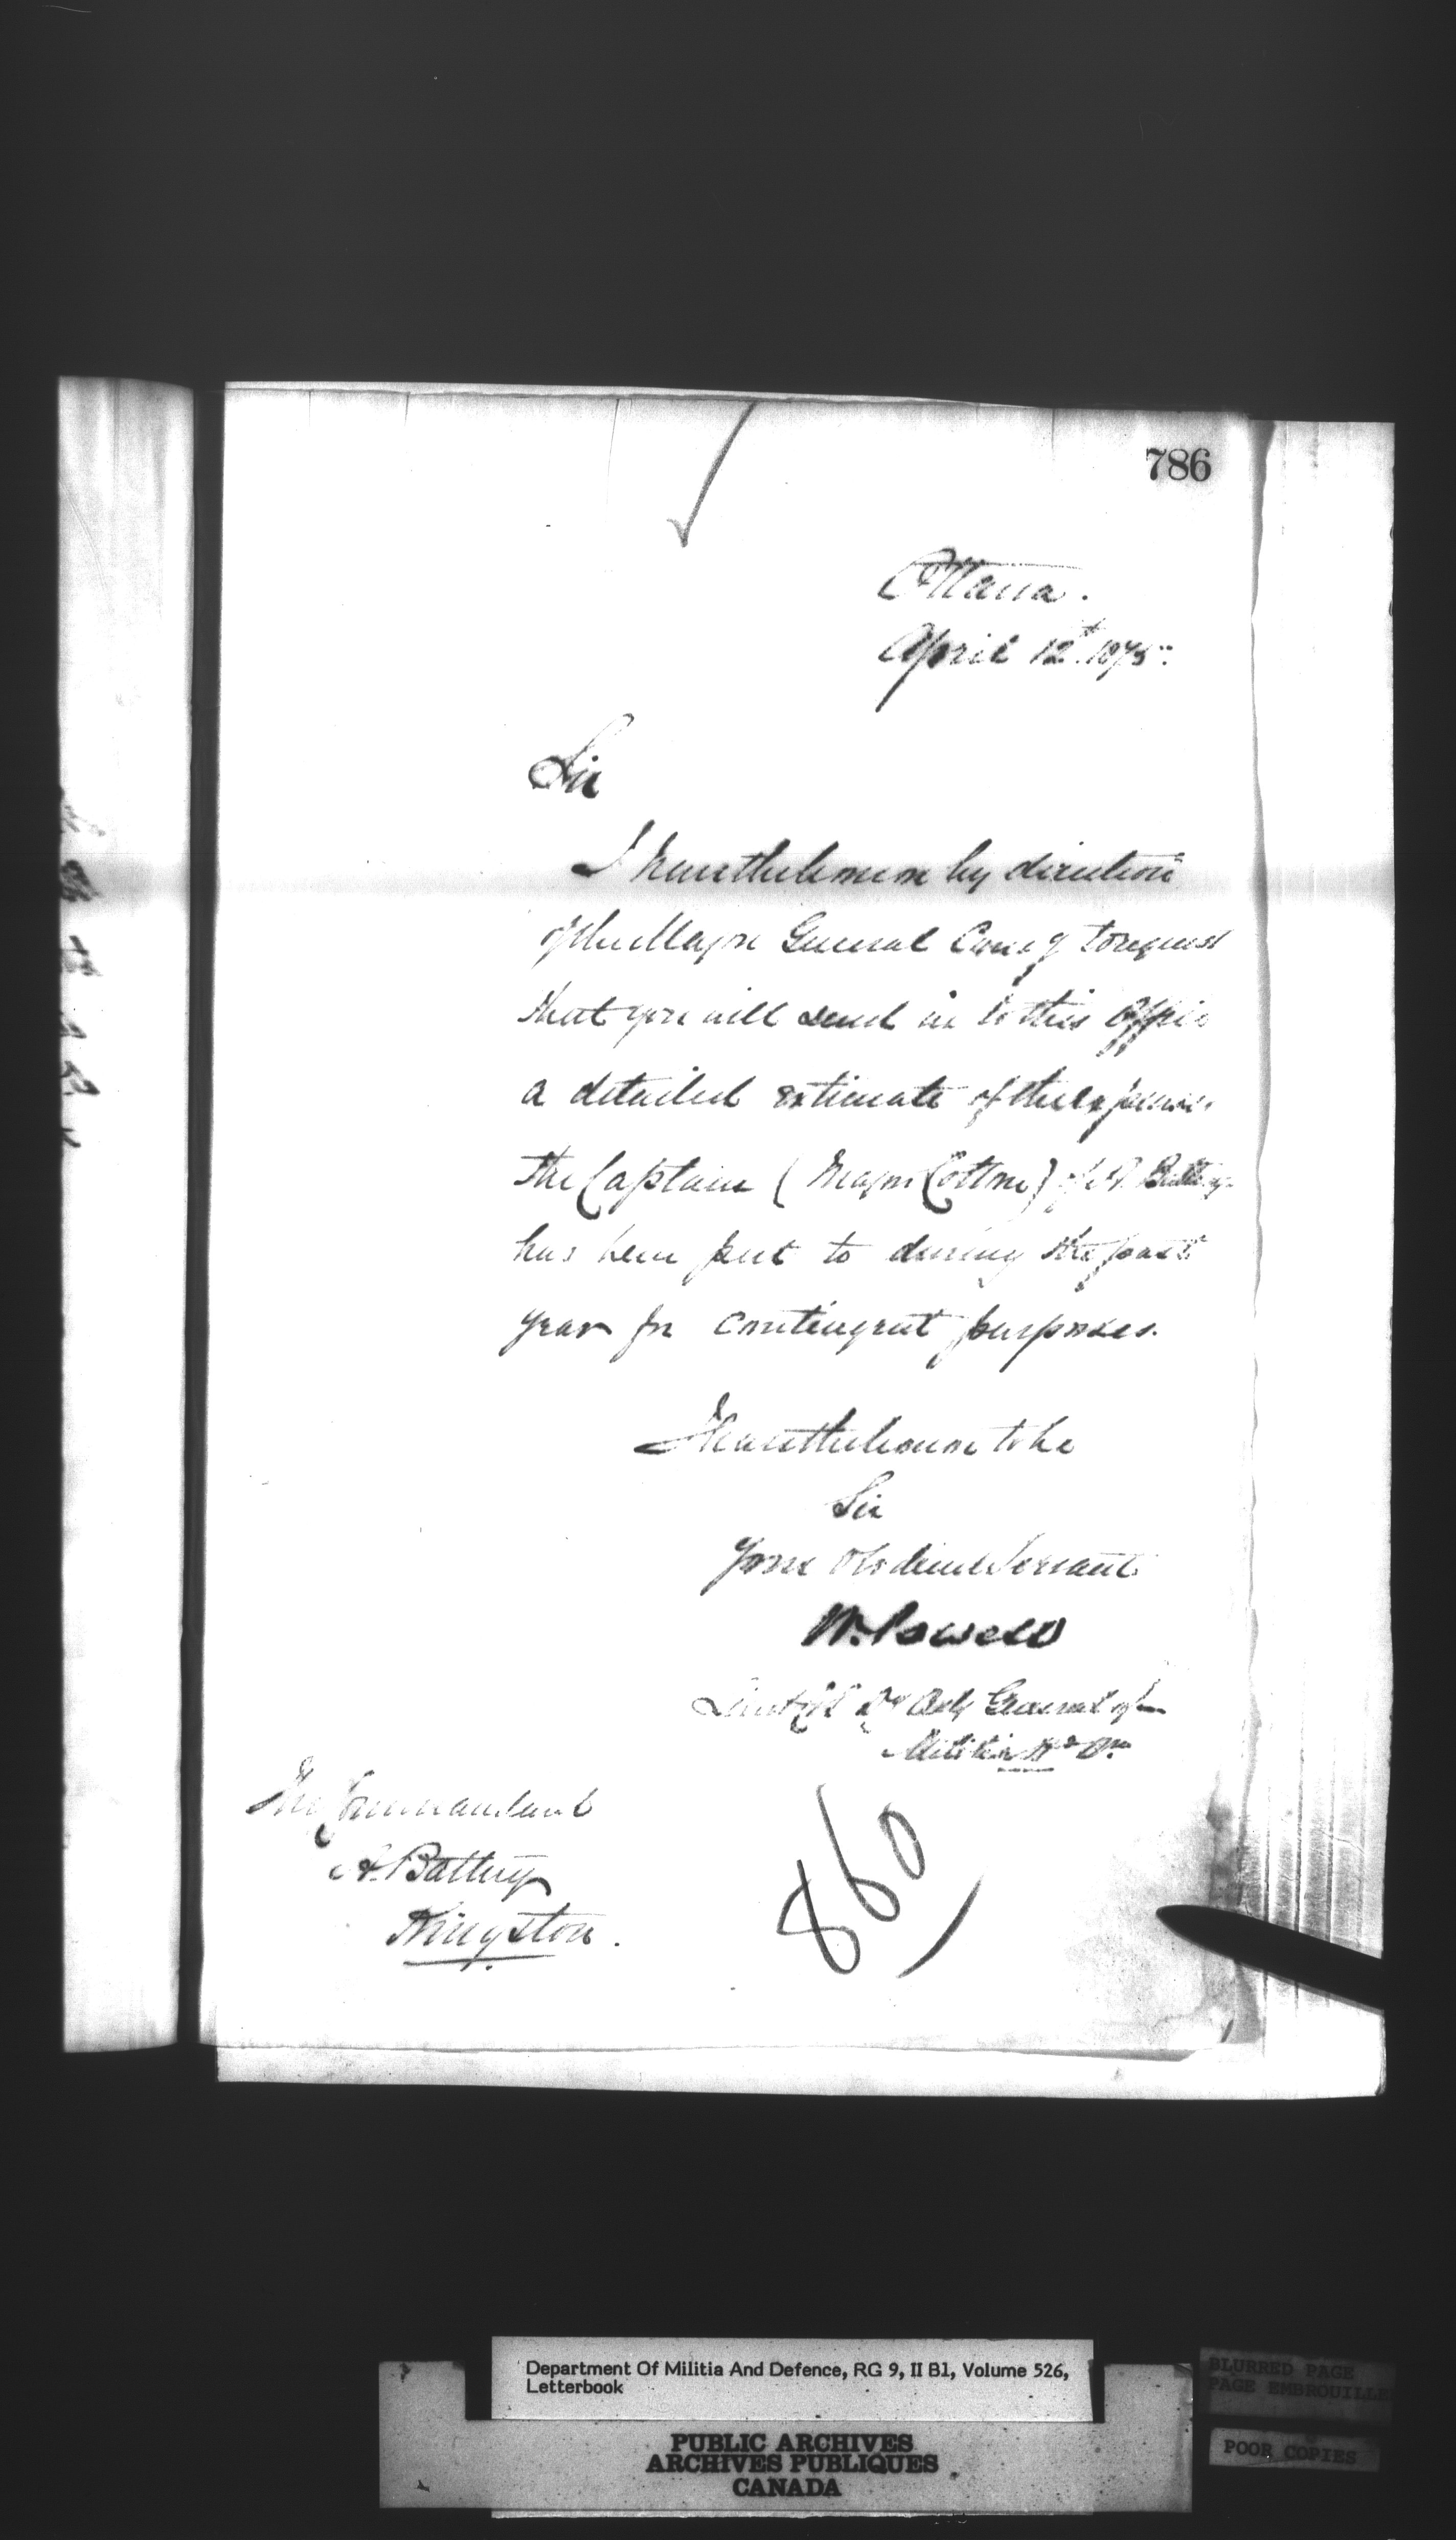 786
Ottawa.
April 12th 1875.
Sir
I have the honor by direction
of the Major General Comg to request
that you will send in to this Office
a detailed estimate of the expenses
the Captain (Major Cotton) of A. Battery
has been put to during the past
year for Contingent purposes.
I have the honor to be
Sir
Your Obedient Servant
W. Powell
Lieut Col Dy Adj General of
Militia
The Commandant
A. Battery
Kingston.
860
Department Of Militia And Defence, RG 9, II B1, Volume 526,
Letterbook
PUBLIC ARCHIVES
ARCHIVES PUBLIQUES
CANADA
BLURRED PAGE
PAGE EMBROUILLE
POOR COPIES